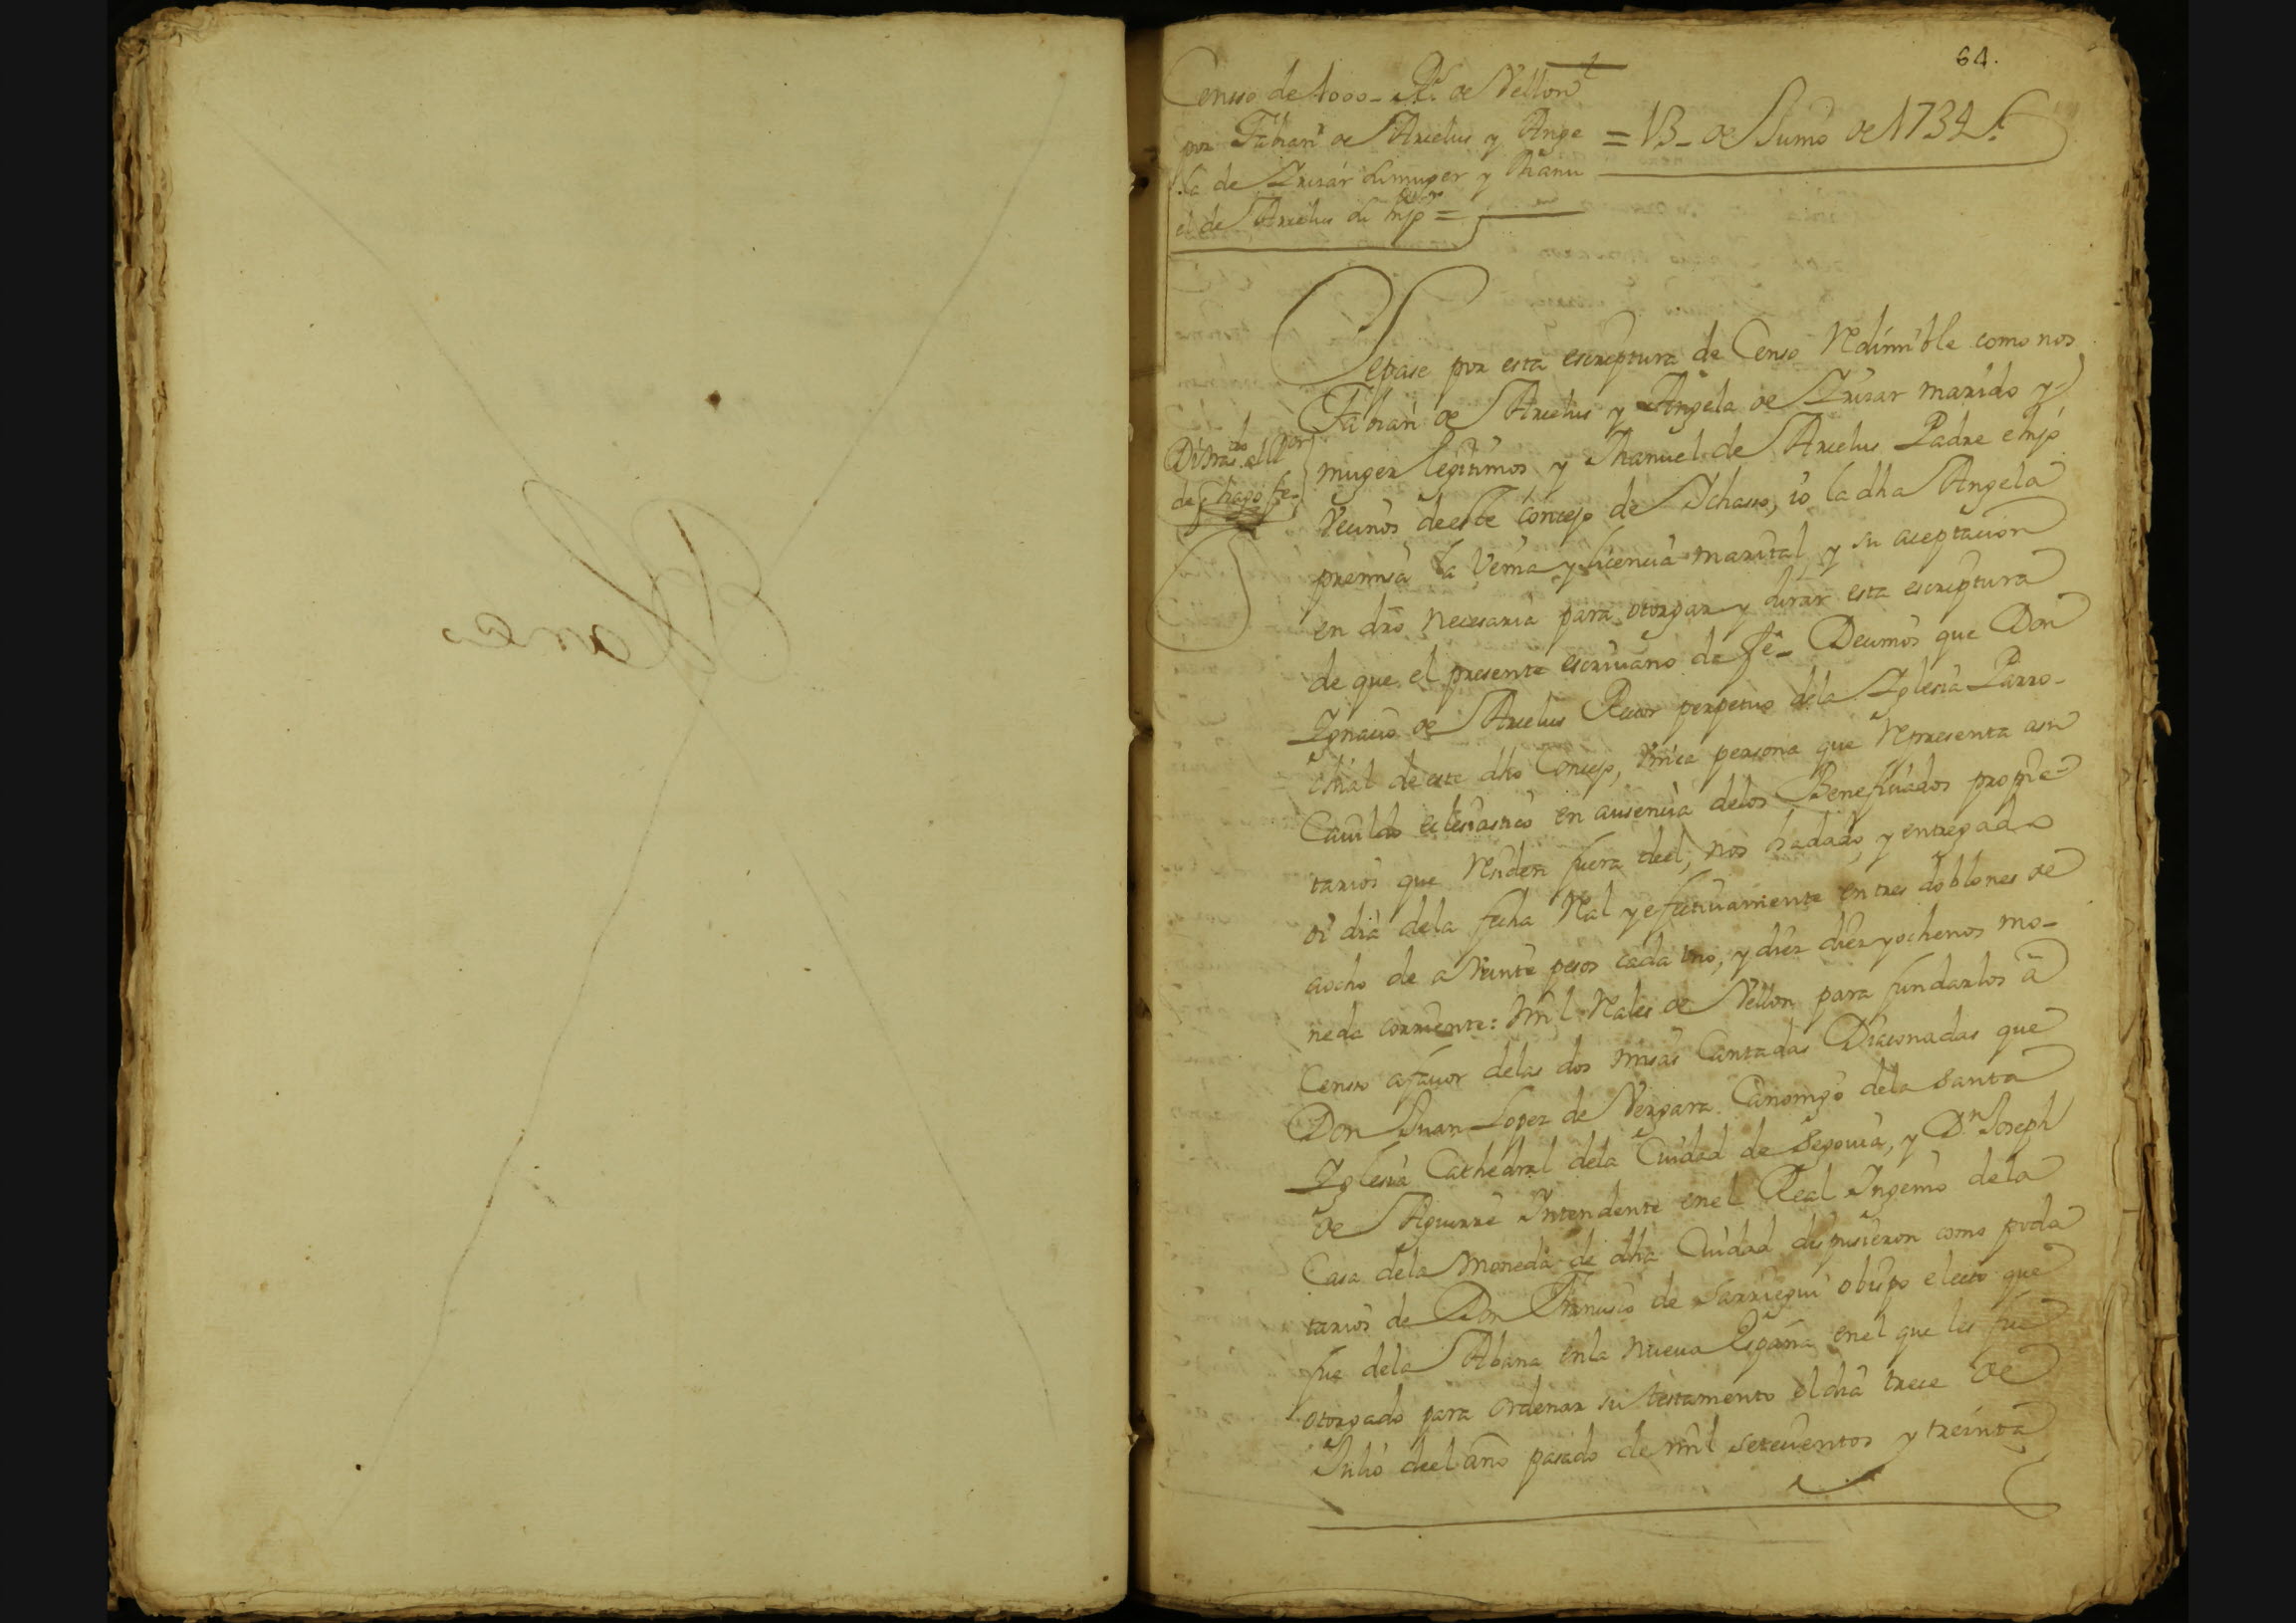 64.
Censso de 1000- Rs. de Vellon
por Fabian de Arcelus y Ange
la de Irizar su muger y Manu
el de Arcelus su hijo =
= 13- de Junio de 1734.
Sepase por esta escriptura de Censo Redimible como nos
Fabian de Arcelus y Angela de Irizar marido y
muger legitimos y Manuel de Arcelus Padre e hijo
Vecinos de este Concejo de Ichasso, io la dha Angela
premisa la Venia y licencia marital y su aceptacion
en dro necesaria para otorgar y jurar esta escriptura
de que el presente escrivano da fe- Decimos que Don
Ignacio de Arcelus Rector perpetuo dela Iglesia Parro-
chial de este dho Concejo, Unica persona que representa asu
Cavildo eclesiastico en ausencia delos Beneficiados propie-
tarios que residen fuera deel, nos ha dado, y entregado
oi dia dela fecha Real y efectivamente en tres doblones de
aocho de a Veinte pesos cada Uno, y diez diez y ochenos mo-
neda corriente: mil Reales de Vellon para fundarlos â
Censo afavor delas dos misas Cantadas Diaconadas que
Don Juan Lopez de Vergara Canonigo dela Santa
Iglesia Cathedral dela Ciudad de Segovia, y Dn. Joseph
de Aguirre Intendente enel Real Ingenio dela
Casa dela Moneda de dha Ciudad dispusieron como poda
tarios de Don Francisco de Sarriegui obispo electo que
fue dela Abana enla nueva España enel que les fue
otorgado para ordenar su testamento el dia trece de
Julio deel año pasado de mil setecientos y treinta
de hago fe-
Blanco